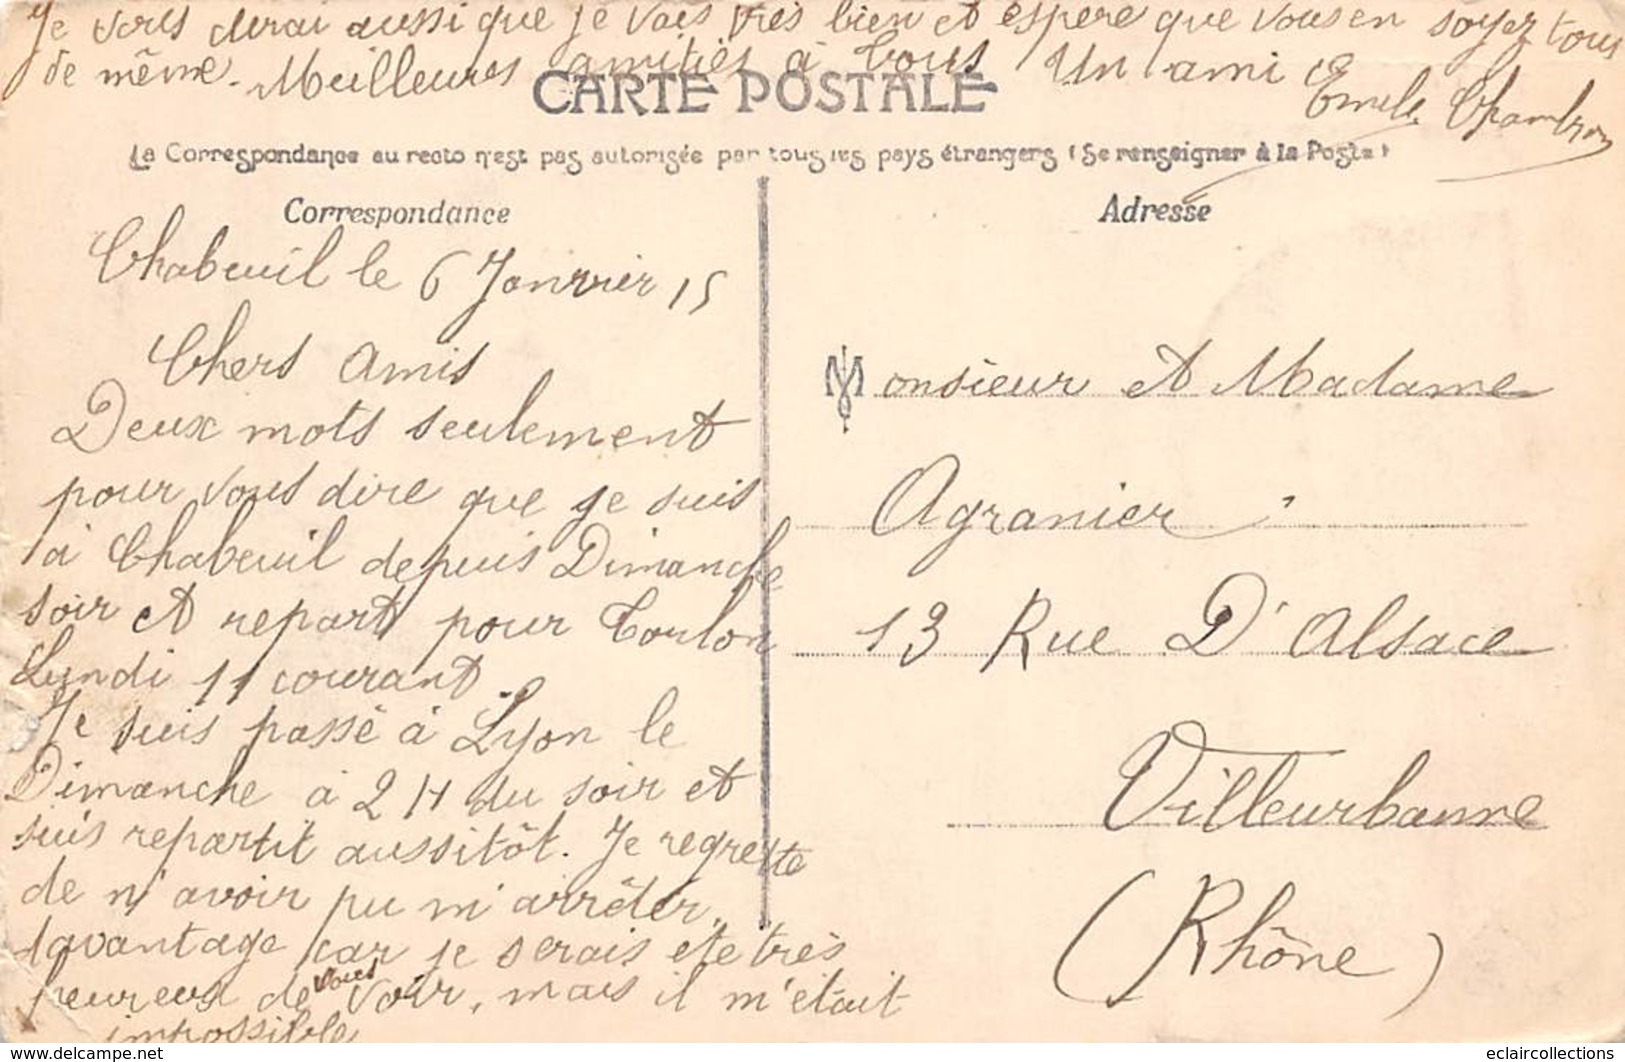 Je vous dirai aussi que je vais très bien et espère que vous en soyez tous
de même. Meilleures amitiés à tous Un ami Emile Chambron
CARTE POSTALE
La Correspondance au recto n'est pas autorisée par tous les pays étrangers (Se renseigner à la Poste)
Correspondance
Chabeuil le 6 Janvier 15
Chers Amis
Deux mots seulement
pour vous dire que je suis
à Chabeuil depuis Dimanche
soir et repart pour Toulon
Lundi 11 courant.
Je suis passé à Lyon le
Dimanche à 2 H du soir et
suis repartit aussitôt. Je regrette
de n'avoir pu m'arrêter
davantage car je serais ete très
heureux de vous voir, mais il m'était
impossible
Adresse
Monsieur et Madame
Agranier
13 Rue D'Alsace
Villeurbanne
(Rhône)
www.delcampe.net
eclaircollections